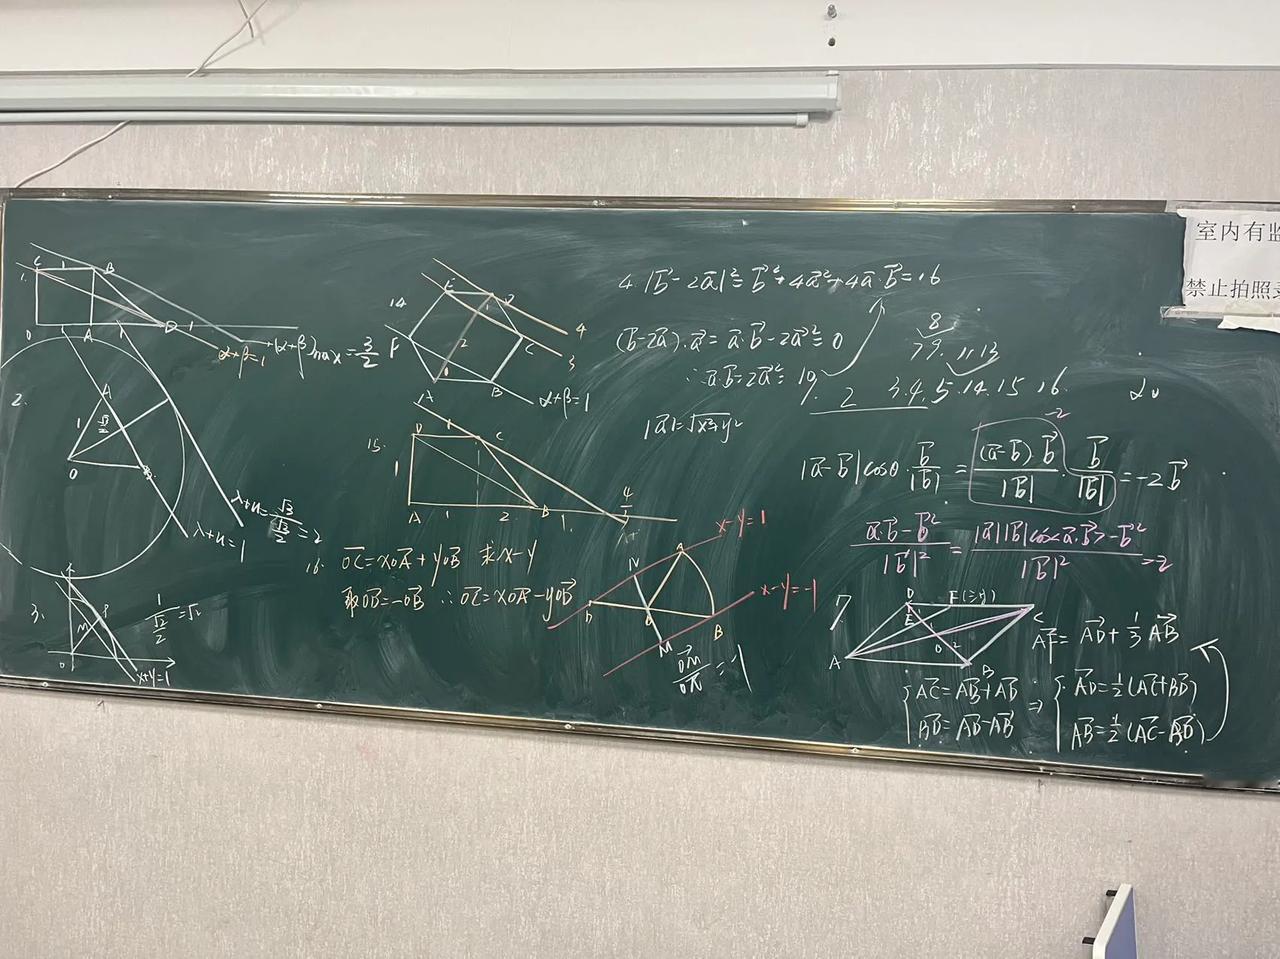 室内有监
禁止拍照录
C 1 B
1
O A D 1
α+β=1 (α+β)max=3/2
2.
A
1 √3/2
O B
λ+u=√3/(√3/2)=2
λ+u=1
3.
M
O
x+y=1
1/(√2/2)=√2
14.
E D
1
F 2 C
A B
4
3
α+β=1
15.
D C
1
A 1 2 B 1
16. OC=xOA+yOB 求x-y
取OD=-OB ∴OC=xOA-yOD
x-y=1
N A
D O B
M
x-y=-1
OM/ON=-1
4. |b-2a|²=b²+4a²+4a·b=16
(b-2a)·a=a·b-2a²=0
∴a·b=2a²=
|a|=√x²+y²
8
7 9. 11 13
2 3.4.5.14.15.16. 20
-2
|a-b|cosθ·b/|b|=(a-b)·b/|b|·b/|b|=-2b
(a·b-b²)/|b|²=(|a||b|cos<a·b>-b²)/|b|²=-2
7.
D F(三分)
E C
O 2
A B
AF=AD+1/3AB
AC=AB+AD ⇒ AD=1/2(AC+BD)
BD=AD-AB AB=1/2(AC-BD)